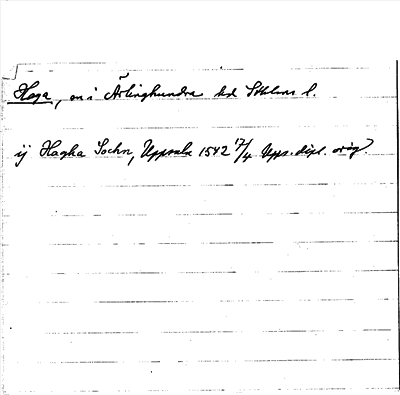 Haga, sn i Ärlinghundra hd Sthlms l.
ij Hagha Sochn, Uppsala 1542 7/4 Upps. dipl. orig.